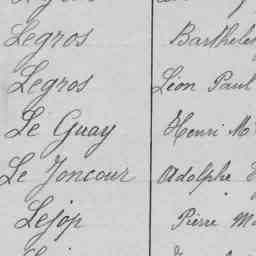 Legros Barthele
Legros Léon Paul
Le Guay Henri M
Le Joncour Adolphe
Lejop Pierre M